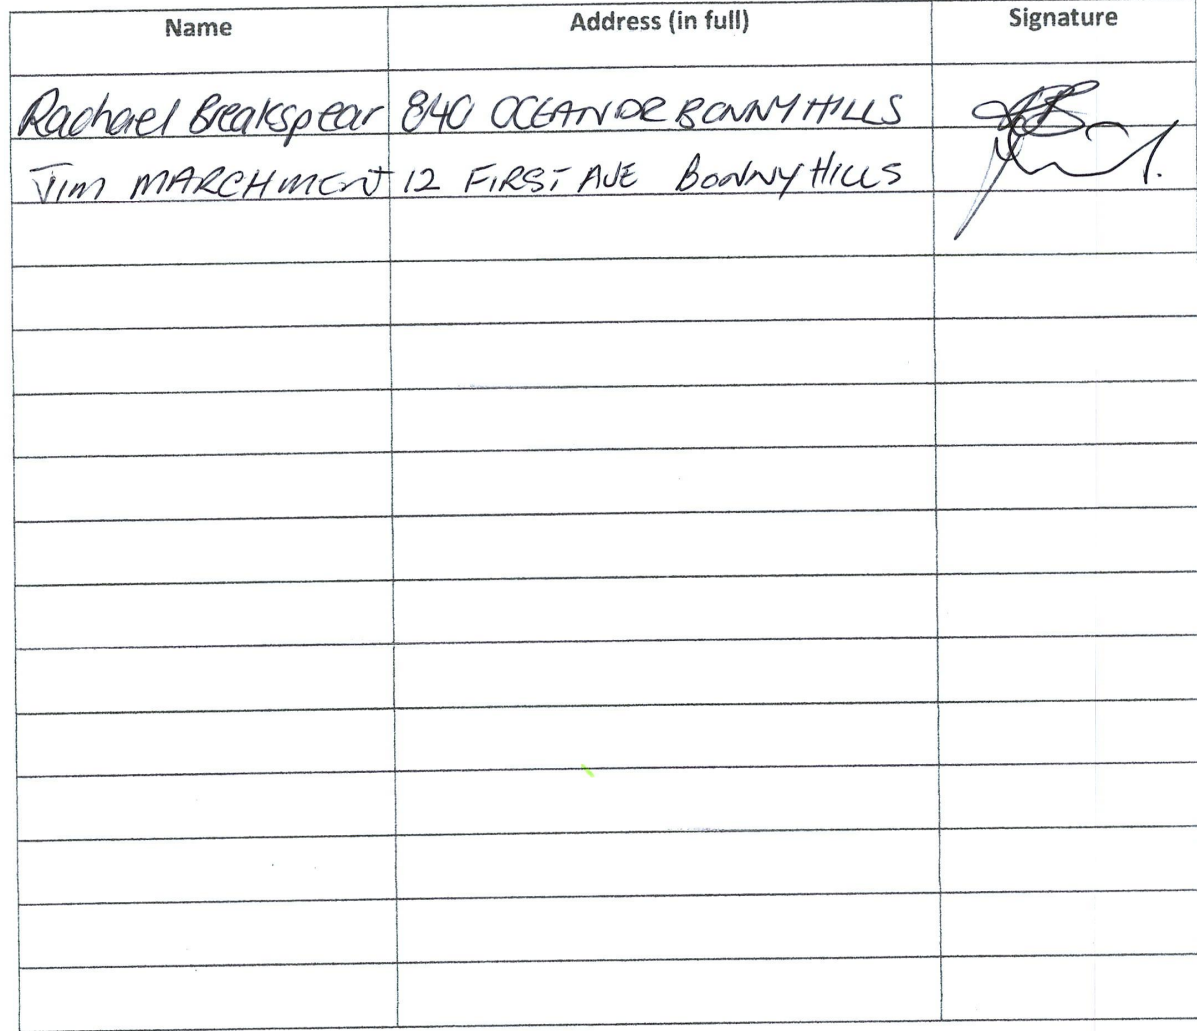 Name Address (in full) Signature
Rachael Breakspear 840 OCEAN DR BONNY HILLS
Jim MARCHMENT 12 FIRST AVE BONNY HILLS